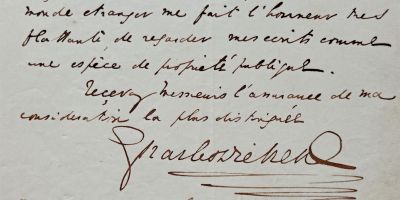 monde etranger me fait l'honneur tres
flattante de regarder mes ecrits comme
une espèce de propriété publique.
Recevez messieurs l'assurance de ma
consideration la plus distinguée
Charles Dickens